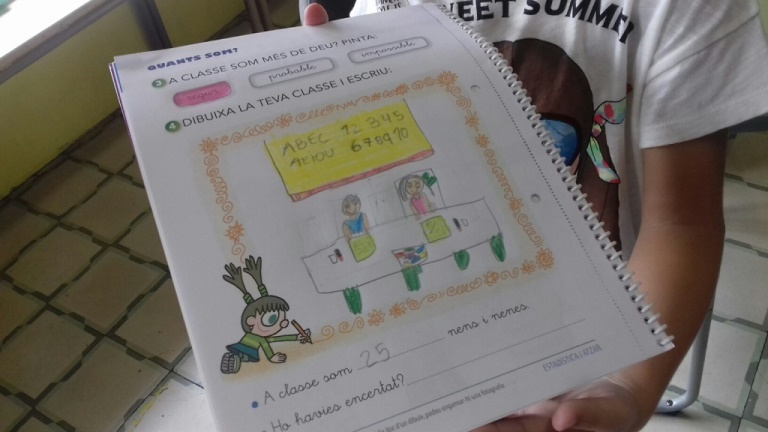 QUANTS SOM?
3 A CLASSE SOM MÉS DE DEU? PINTA:
segur probable impossible
4 DIBUIXA LA TEVA CLASSE I ESCRIU:
ABEC 12345
AEIOU 678910
• A classe som 25 nens i nenes.
• Ho havies encertat?
ESTADÍSTICA I ATZAR
EET SUMME